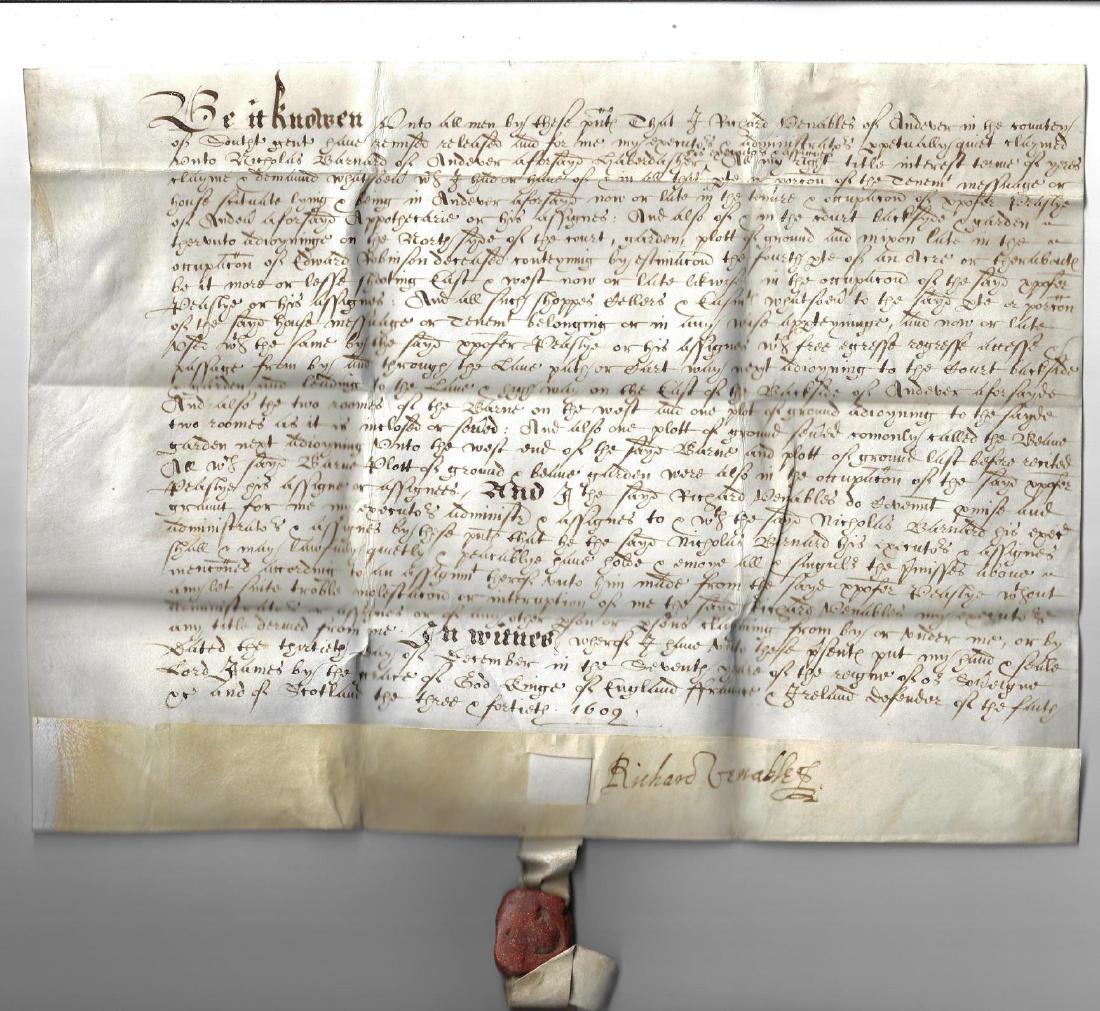 Be it knowen Unto all men by these pntes That I Richard Venables of Andever in the countey
of Southt gent have remised released and for me my executors & administrators ppetually quiet claymed
executors & assignes
Unto Nicholas Barnard of Andever aforsayd haberdasher All my right title interest terme of yeres
clayme & demaund whatsoev wch I had or have of & in all that pte or porcon of the Tenemt messuage or
house scituate lying & being in Andever aforsayd now or late in the tenure & occupacon of xpofer
of Andev aforsayd Appothecarie or his assignes: And also of & in the court backsyde & garden
therunto adioyninge on the North syde of the court, garden, plott of ground and late in the
occupacon of Edward Robinson deceased conteyning by estimacon the fourth pte of an Acre or therabouts
be it more or lesse shooting East & west now or late likewise in the occupacon of the sayd xpofer
or his assignes: And all such shoppes Sellers & Easmts whatsoev to the sayd pte or porcon
of the sayd house messuage or Tenemt belonging or in any wise appteyninge, and now or late
used wth the same by the sayd xpofer or his assignes wth free egresse regresse accesse &
passage from by and through the Lane path or Cart way next adioyning to the Court backside
& garden and leading to the Lane & high way on the East of the Backside of Andever aforsayde
And also the two roomes of the Barne on the west and one plot of ground adioyning to the sayde
two roomes as it is inclosed or sevred: And also one plott of ground sevred comonly called the Beane
garden next adioyning Unto the west end of the sayd Barne and plott of ground last before recited
All wch sayd Barne Plott of ground & beane garden were also in the occupacon of the sayd xpofer
his assigne or assignees, And I the sayd Richard Venables do Covennt pmise and
graunt for me my executors administr & assignes to & wth the sayd Nicholas Barnard his execr
administrators & assignes by these pntes that he the sayd Nicholas Barnard his executors & assignes
shall & may lawfully quietly & peacablye have holde & enioye all & singuler the pmisses above
menconed according to an assignmt therof unto him made from the sayd xpofer wthout
any let suite troble molestacon or interuption of me the sayd Richard Venables my executors
administrators or assignes or of any other pson or psons clayming from by or under me, or by
any title derived from me. In witnes wherof I have unto these psents put my hand & seale
Dated the thirtieth day of December in the Seventh yeare of the reigne of or Soveigne
Lord James by the grace of God Kinge of England ffraunce & Ireland defender of the faith
&c and of Scotland the three & fortieth. 1609.
Richard Venables